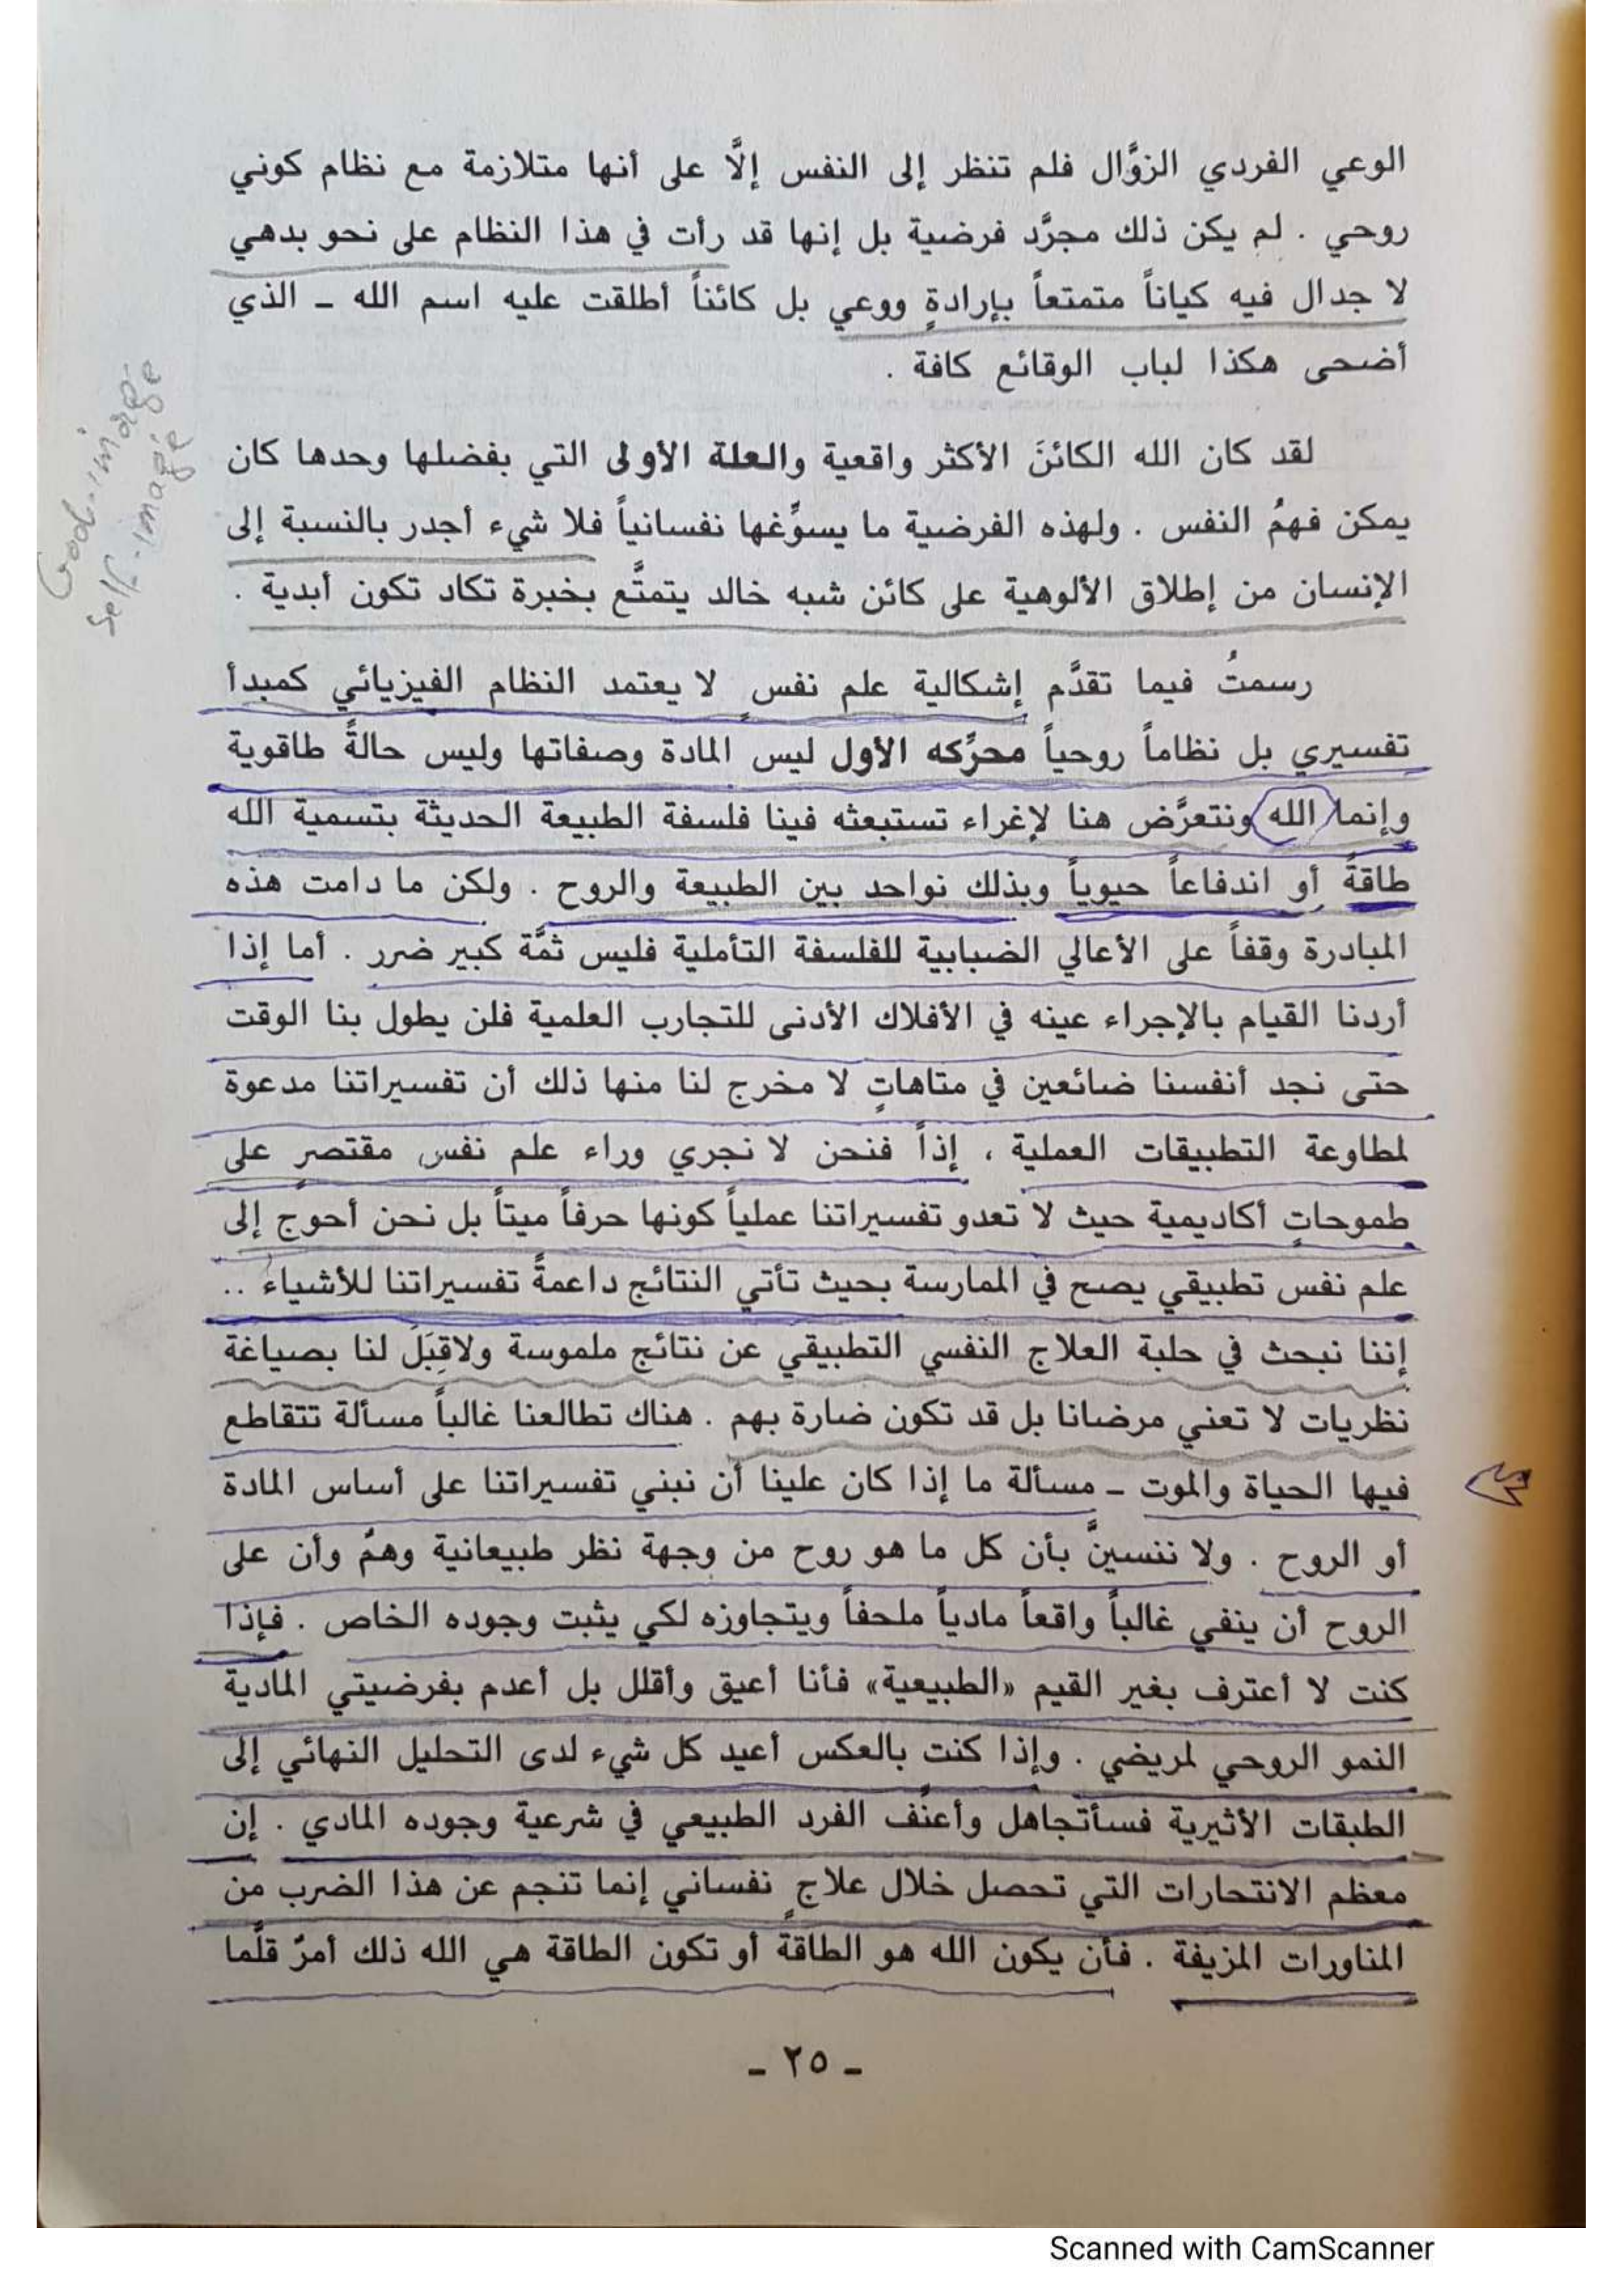 الوعي الفردي الزوَّال فلم تنظر إلى النفس إلَّا على أنها متلازمة مع نظام كوني
روحي . لم يكن ذلك مجرَّد فرضية بل إنها قد رأت في هذا النظام على نحو بدهي
لا جدال فيه كياناً متمتعاً بإرادةٍ ووعي بل كائناً أطلقت عليه اسم الله ــ الذي
أضحى هكذا لباب الوقائع كافة .
لقد كان الله الكائنَ الأكثر واقعية والعلة الأولى التي بفضلها وحدها كان
يمكن فهمُ النفس . ولهذه الفرضية ما يسوِّغها نفسانياً فلا شيء أجدر بالنسبة إلى
الإنسان من إطلاق الألوهية على كائن شبه خالد يتمتَّع بخبرة تكاد تكون أبدية .
God-image
self-image
رسمتُ فيما تقدَّم إشكالية علم نفسٍ لا يعتمد النظام الفيزيائي كمبدأ
تفسيري بل نظاماً روحياً محرِّكه الأول ليس المادة وصفاتها وليس حالةً طاقوية
وإنما الله ونتعرَّض هنا لإغراء تستبعثه فينا فلسفة الطبيعة الحديثة بتسمية الله
طاقةً أو اندفاعاً حيوياً وبذلك نواحد بين الطبيعة والروح . ولكن ما دامت هذه
المبادرة وقفاً على الأعالي الضبابية للفلسفة التأملية فليس ثمَّة كبير ضرر . أما إذا
أردنا القيام بالإجراء عينه في الأفلاك الأدنى للتجارب العلمية فلن يطول بنا الوقت
حتى نجد أنفسنا ضائعين في متاهاتٍ لا مخرج لنا منها ذلك أن تفسيراتنا مدعوة
لمطاوعة التطبيقات العملية ، إذاً فنحن لا نجري وراء علم نفس مقتصرٍ على
طموحاتٍ أكاديمية حيث لا تعدو تفسيراتنا عملياً كونها حرفاً ميتاً بل نحن أحوج إلى
علم نفس تطبيقي يصح في الممارسة بحيث تأتي النتائج داعمةً تفسيراتنا للأشياء ..
إننا نبحث في حلبة العلاج النفسي التطبيقي عن نتائج ملموسة ولاقِبَلَ لنا بصياغة
نظريات لا تعني مرضانا بل قد تكون ضارة بهم . هناك تطالعنا غالباً مسألة تتقاطع
فيها الحياة والموت ــ مسألة ما إذا كان علينا أن نبني تفسيراتنا على أساس المادة
أو الروح . ولا ننسينَّ بأن كل ما هو روح من وجهة نظر طبيعانية وهمٌ وأن على
الروح أن ينفي غالباً واقعاً مادياً ملحفاً ويتجاوزه لكي يثبت وجوده الخاص . فإذا
كنت لا أعترف بغير القيم «الطبيعية» فأنا أعيق وأقلل بل أعدم بفرضيتي المادية
النمو الروحي لمريضي . وإذا كنت بالعكس أعيد كل شيء لدى التحليل النهائي إلى
الطبقات الأثيرية فسأتجاهل وأعنِّف الفرد الطبيعي في شرعية وجوده المادي . إن
معظم الانتحارات التي تحصل خلال علاجٍ نفساني إنما تنجم عن هذا الضرب من
المناورات المزيفة . فأن يكون الله هو الطاقةَ أو تكون الطاقة هي الله ذلك أمرٌ قلَّما
ــ ٢٥ ــ
Scanned with CamScanner